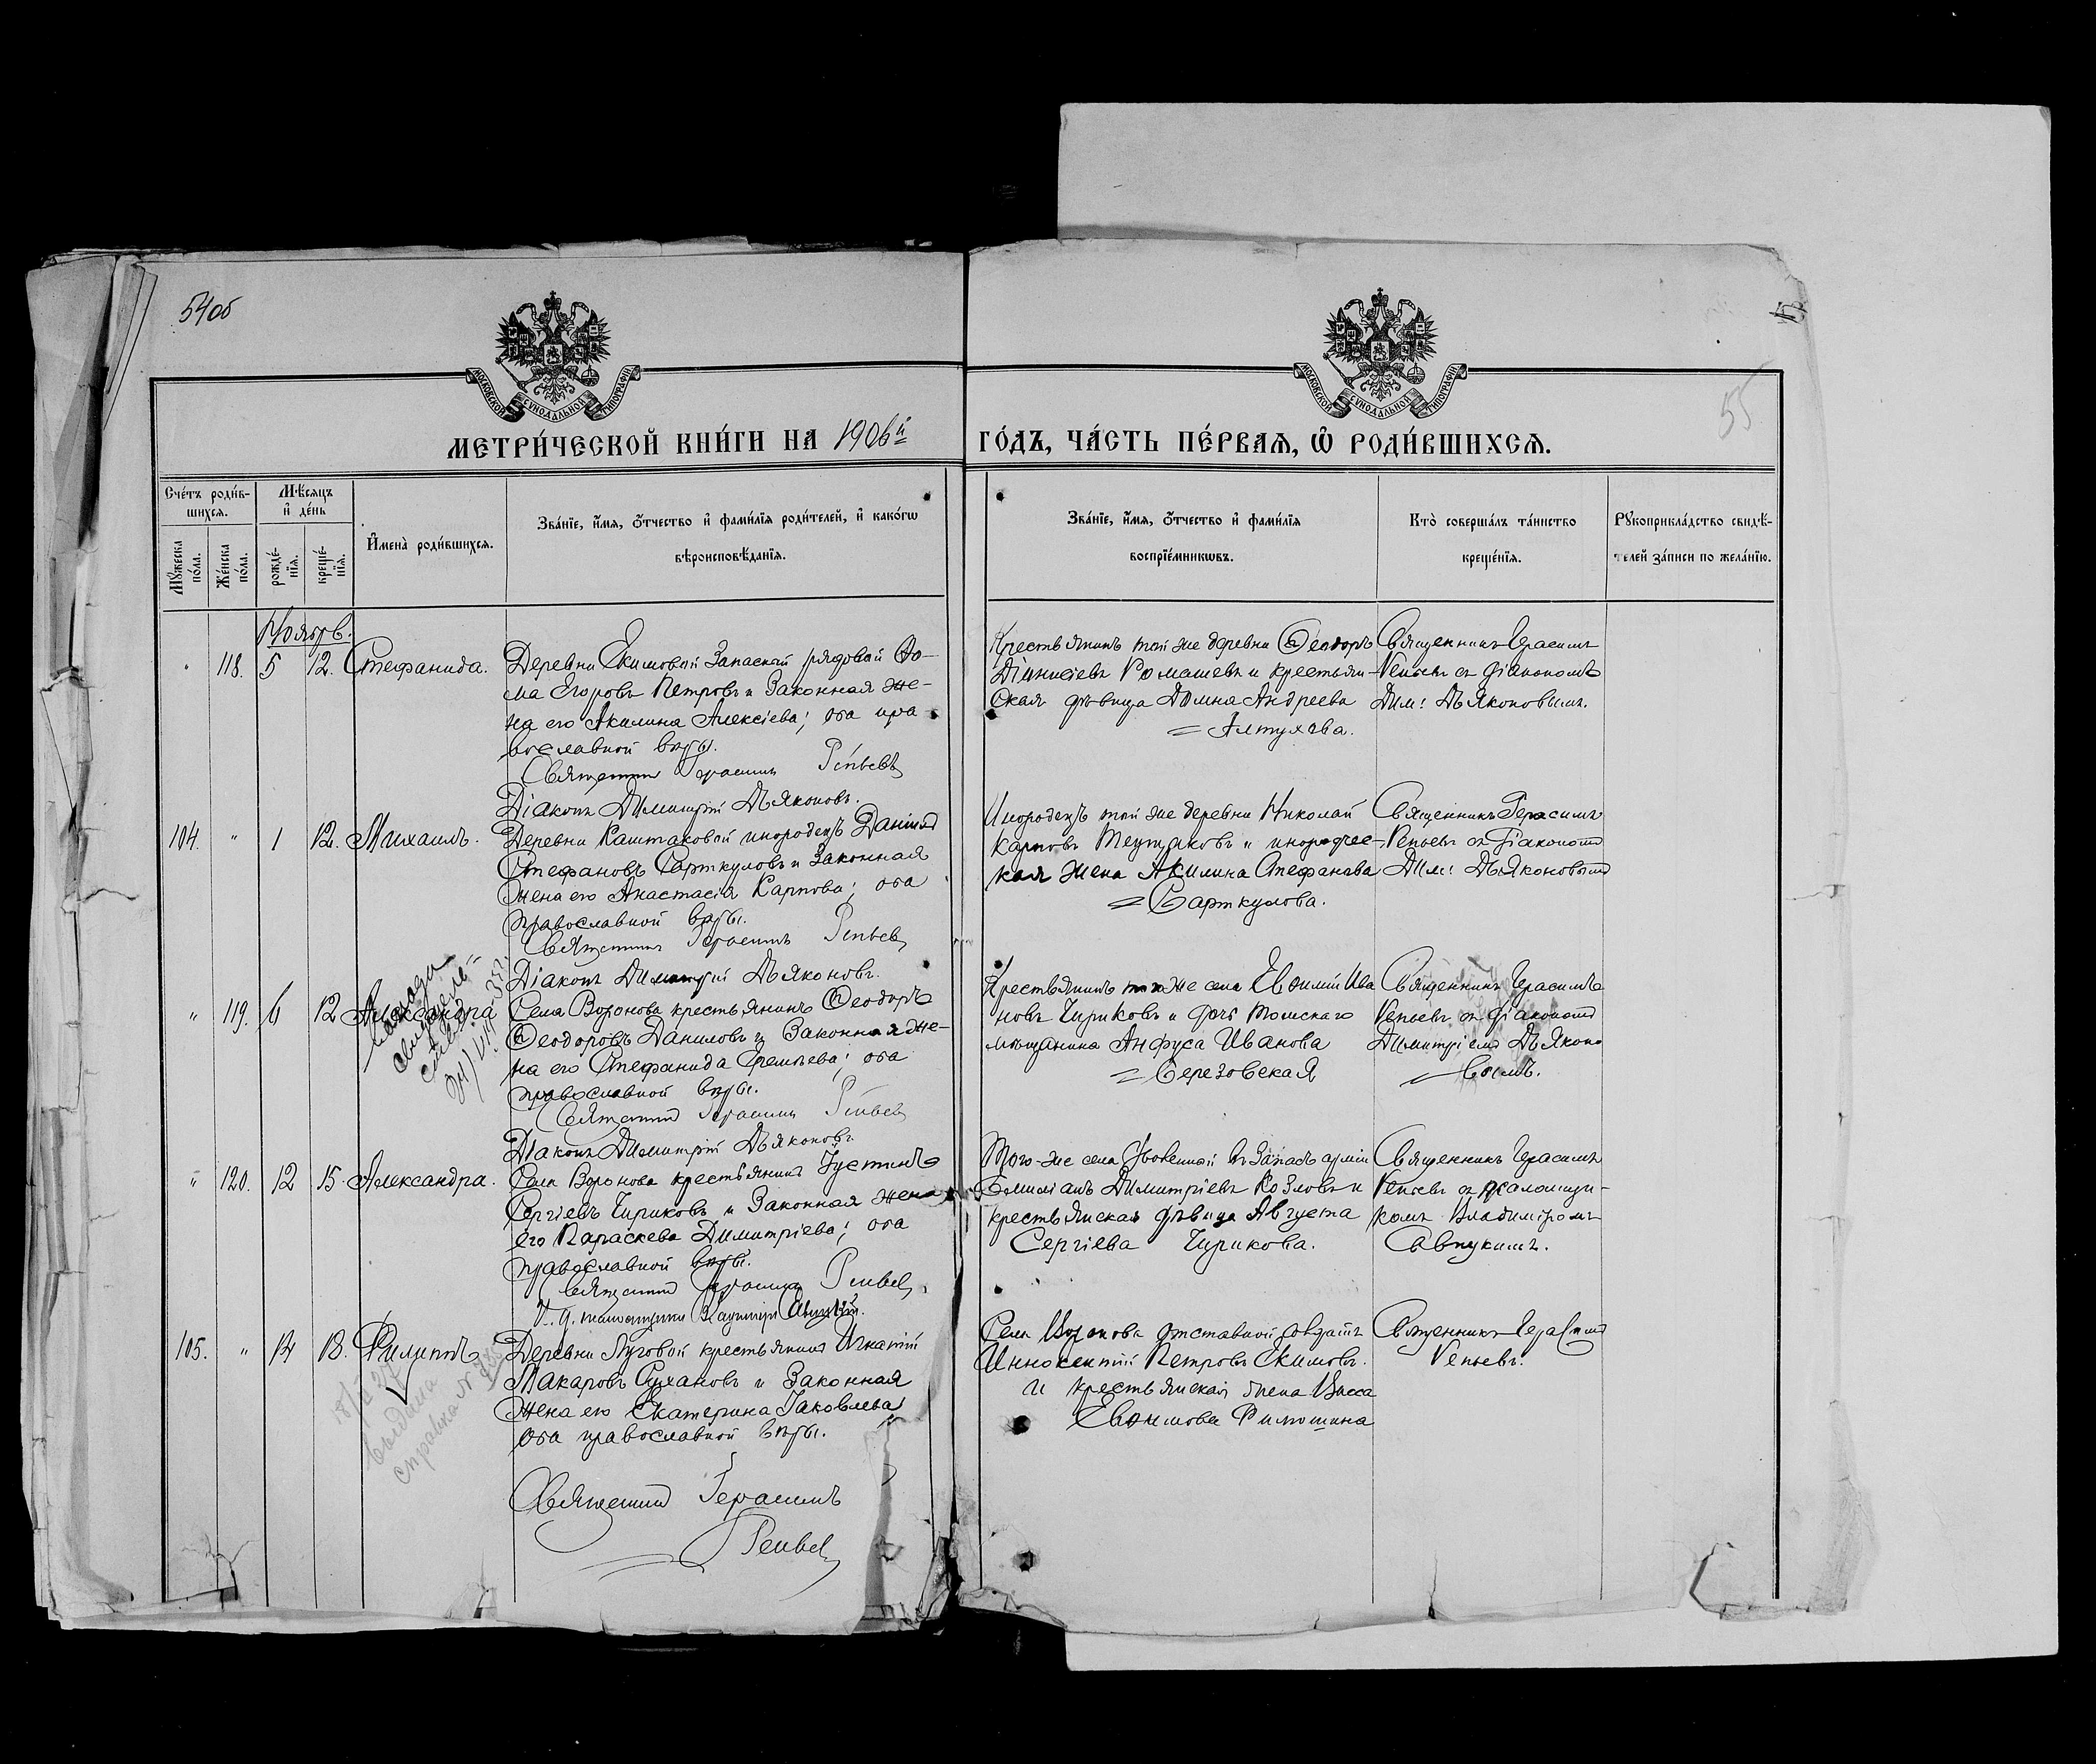 54 об
55
МОСКОВСКОЙ СѴНОДАЛЬНОЙ ТИПОГРАФІИ
МОСКОВСКОЙ СѴНОДАЛЬНОЙ ТИПОГРАФІИ
МЕТРИ́ЧЕСКОЙ КНИ́ГИ НА 1906й ГО́ДЪ, ЧА́СТЬ ПЕ́РВАЯ, Ѽ РОДИ́ВШИХСЯ.
Сче́тъ роди́в-
шихся.
Мꙋ́жеска по́ла.
Же́нска по́ла.
Мѣ́сяцъ и҆ де́нь
рожде́-
нїя.
креще́-
нїя.
И҆мена̀ роди́вшихся.
Зва́нїе, и҆́мя, ѻ҆́тчество и҆ фами́лїя роди́телей, и҆ како́гѡ
вѣроисповѣ́данїя.
Зва́нїе, и҆́мя, ѻ҆́тчество и҆ фами́лїя
воспрїе́мникѡвъ.
Кто̀ соверша́лъ та́инство
креще́нїя.
Рꙋкоприкла́дство свидѣ́-
телей за́писи по жела́нїю.
Ноябрь.
" 118. 5 12. Стефанида.
Деревни Екимовой Запасной рядовой Ѳо-
ма Егоровъ Петровъ и Законная же-
на его Акилина Алексіева; оба пра-
вославной вѣры.
Священникъ Герасимъ Репьевъ
Діаконъ Димитрій Дьяконовъ.
Крестьянинъ той же деревни Ѳеодоръ
Діонисіевъ Ромашевъ и крестьян-
ская дѣвица Домна Андреева
Алтухова.
Священникъ Герасимъ
Репьевъ съ діакономъ
Дим: Дьяконовымъ.
104. " 1 12. Михаилъ.
Деревни Каштаковой инородецъ Даніилъ
Стефановъ Сарткуловъ и Законная
жена его Анастасія Карпова; оба
православной вѣры.
Священникъ Герасимъ Репьевъ
Діаконъ Димитрій Дьяконовъ.
Инородецъ той же деревни Николай
Карповъ и инородчес-
кая жена Акилина Стефанова
Сарткулова.
Священникъ Герасимъ
Репьевъ съ діакономъ
Дим: Дьяконовымъ
" 119. 6 12 Александра
Села Воронова крестьянинъ Ѳеодоръ
Ѳеодоровъ Даниловъ и Законная же-
на его Стефанида; оба
православной вѣры.
Священникъ Герасимъ Репьевъ
Діаконъ Димитрій Дьяконовъ.
Крестьянинъ того же села Евѳимій Ива
новъ Чириковъ и дочь Томскаго
мѣщанина Анфуса Иванова
Березовская
Священникъ Герасимъ
Репьевъ съ діакономъ
Димитріемъ Дьяконо
вымъ.
" 120. 12 15. Александра.
Села Воронова крестьянинъ Іустинъ
Сергіевъ Чириковъ и Законная жена
его Параскева Димитріева; оба
православной вѣры.
Священникъ Герасимъ Репьевъ
Того-же села уволенный въ Запасъ арміи
Емиліанъ Димитріевъ Козловъ и
крестьянская дѣвица Августа
Сергіева Чирикова.
Священникъ Герасимъ
Репьевъ съ псаломщи-
комъ Владиміромъ
105. " 14 18. Филиппъ
Деревни Луговой крестьянинъ Игнатій
Макаровъ Сухановъ и Законная
жена его Екатерина Іаковлева
оба православной вѣры.
Священникъ Герасимъ
Репьевъ
Села Воронова отставной солдатъ
Иннокентій Петровъ Екимовъ.
и крестьянская жена Васса
Евѳимова Филошина
Священникъ Герасимъ
Репьевъ.
выдана
справка №